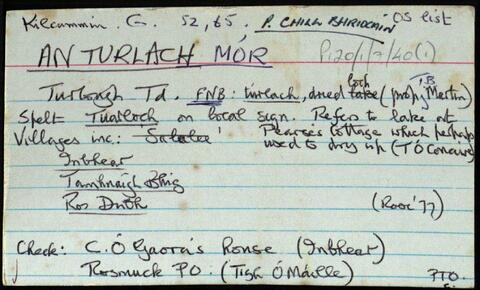 Kilcummin. G. 52, 65. P. CHILL BHRIOCÁIN OS list
AN TURLACH MÓR P120/1/7/40(1)
Turlough Td. FNB: turlach, dried lake loch (prop. TB Martin)
Spelt Tuarloch on local sign. Refers to lake at
Villages inc: Pearse's Cottage which perhaps
used to dry up (T Ó Conaire)
Inbhear
Ros Dubh (Rooc '77)
Check: C. Ó Gaora's house (Inbhear)
Rosmuck PO. (Tigh Ó Máille) PTO.